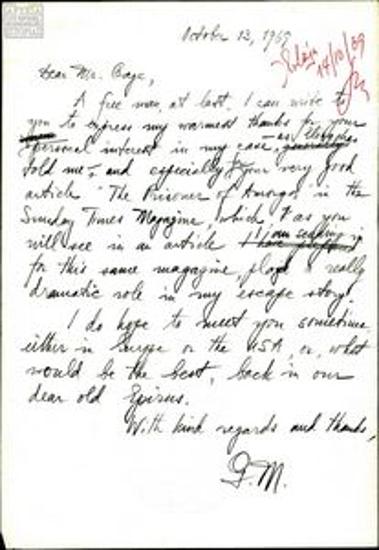 October 13, 1969
14/10/69
Dear Mr. Gage,
A free man, at last, I can write to
you to express my warmest thanks for your
personal interest in my case, – as
told me –, and especially for your very good
article "The Prisoner of Amorgos" in the
Sunday Times Magazine, which, as you
will see in an article I am sending
for this same magazine, played a really
dramatic role in my escape story.
I do hope to meet you sometime
either in Europe or the USA, or, what
would be the best, back in our
dear old Epirus.
With kind regards and thanks,
G.M.